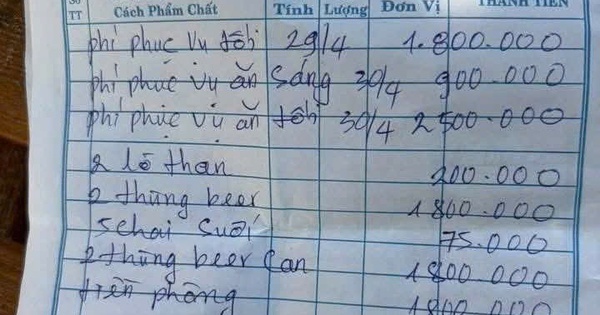 Số TT Cách Phẩm Chất Tính Lượng Đơn Vị THÀNH TIỀN
phí phục vụ tối 29/4 1.800.000
phí phục vụ ăn sáng 30/4 900.000
phí phục vụ ăn tối 30/4 2500.000
2 lò than 200.000
2 thùng beer 1800.000
5 chai suối 75.000
2 thùng beer can 1800.000
tiền phòng 1800.000